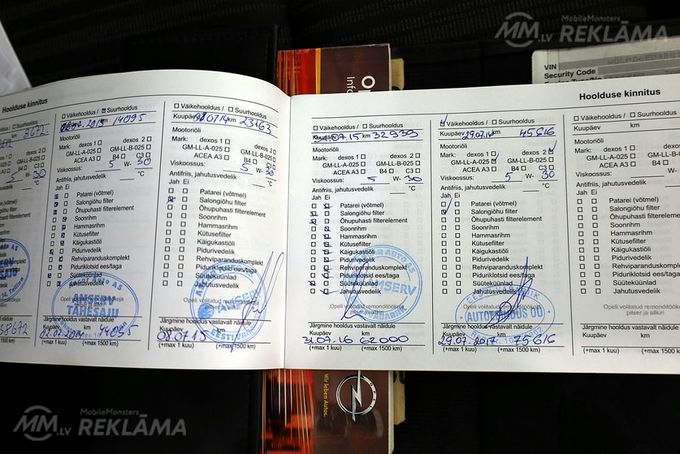 MobileMonsters
MM.LV REKLĀMA
VIN
Security Code
Hoolduse kinnitus
Hoolduse kinnitus
Väikehooldus / Suurhooldus
Kuupäev km
14095
Mootoriõli
Mark: dexos 1 dexos 2
GM-LL-A-025 GM-LL-B-025
ACEA A3 B4 C3
Viskoossus: 5 W- 30
Antifriis, jahutusvedelik °C
Jah Ei
Patarei (võtmed)
Salongiõhu filter
Õhupuhasti filterelement
Soonrihm
Hammasrihm
Kütusefilter
Käigukastiõli
Pidurivedelik
Rehviparanduskomplekt
Piduriklotsid ees/taga
Süüteküünlad
Jahutusvedelik
Järgmine hooldus vastavalt näidule
Kuupäev km
(+max 1 kuu) (+max 1500 km)
Väikehooldus / Suurhooldus
Kuupäev km
23163
Mootoriõli
Mark: dexos 1 dexos 2
GM-LL-A-025 GM-LL-B-025
ACEA A3 B4 C3
Viskoossus: 5 W- 30
Antifriis, jahutusvedelik °C
Jah Ei
Patarei (võtmed)
Salongiõhu filter
Õhupuhasti filterelement
Soonrihm
Hammasrihm
Kütusefilter
Käigukastiõli
Pidurivedelik
Rehviparanduskomplekt
Piduriklotsid ees/taga
Süüteküünlad
Jahutusvedelik
Järgmine hooldus vastavalt näidule
Kuupäev km
08.07.15
(+max 1 kuu) (+max 1500 km)
Väikehooldus / Suurhooldus
Kuupäev km
07.15 32939
Mootoriõli
Mark: dexos 1 dexos 2
GM-LL-A-025 GM-LL-B-025
ACEA A3 B4 C3
Viskoossus: 5 W- 30
Antifriis, jahutusvedelik °C
Jah Ei
Patarei (võtmed)
Salongiõhu filter
Õhupuhasti filterelement
Soonrihm
Hammasrihm
Kütusefilter
Käigukastiõli
Pidurivedelik
Rehviparanduskomplekt
Piduriklotsid ees/taga
Süüteküünlad
Jahutusvedelik
Järgmine hooldus vastavalt näidule
Kuupäev km
31.07.16 62000
(+max 1 kuu) (+max 1500 km)
Väikehooldus / Suurhooldus
Kuupäev km
29.07.1 45616
Mootoriõli
Mark: dexos 1 dexos 2
GM-LL-A-025 GM-LL-B-025
ACEA A3 B4 C3
Viskoossus: 5 W- 30
Antifriis, jahutusvedelik °C
Jah Ei
Patarei (võtmed)
Salongiõhu filter
Õhupuhasti filterelement
Soonrihm
Hammasrihm
Kütusefilter
Käigukastiõli
Pidurivedelik
Rehviparanduskomplekt
Piduriklotsid ees/taga
Süüteküünlad
Jahutusvedelik
Järgmine hooldus vastavalt näidule
Kuupäev km
29.07.2017 75616
(+max 1 kuu) (+max 1500 km)
Väikehooldus /
Kuupäev
Mootoriõli
Mark: dexos 1
GM-LL-A-025
ACEA A3
Viskoossus:
Antifriis, jahutusvedelik
Jah Ei
Patarei (võtmed)
Salongiõhu filter
Õhupuhasti
Soonrihm
Hammasrihm
Kütusefilter
Käigukastiõli
Pidurivedelik
Piduriklotsid
Süüteküünlad
Jahutusvedelik
Järgmine hooldus
Kuupäev
(+max 1 kuu)
Wir leben Autos.
MobileMonsters
MM.LV REKLĀMA